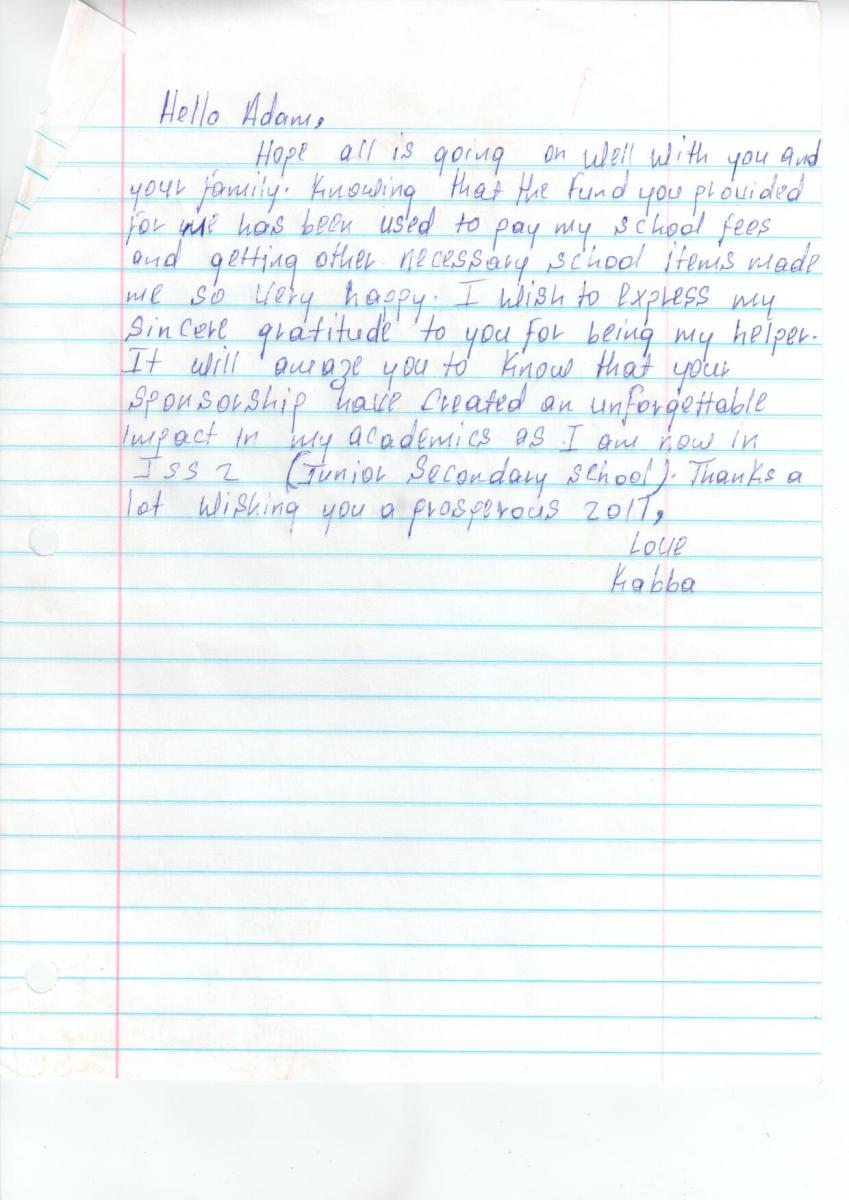 Hello Adam,
Hope all is going on well with you and
your family. Knowing that the fund you provided
for me has been used to pay my school fees
and getting other necessary school items made
me so very happy. I wish to express my
sincere gratitude to you for being my helper.
It will amaze you to know that your
sponsorship have created an unforgettable
impact in my academics as I am now in
JSS 2 (Junior Secondary School). Thanks a
lot wishing you a prosperous 2017,
Love
Kabba